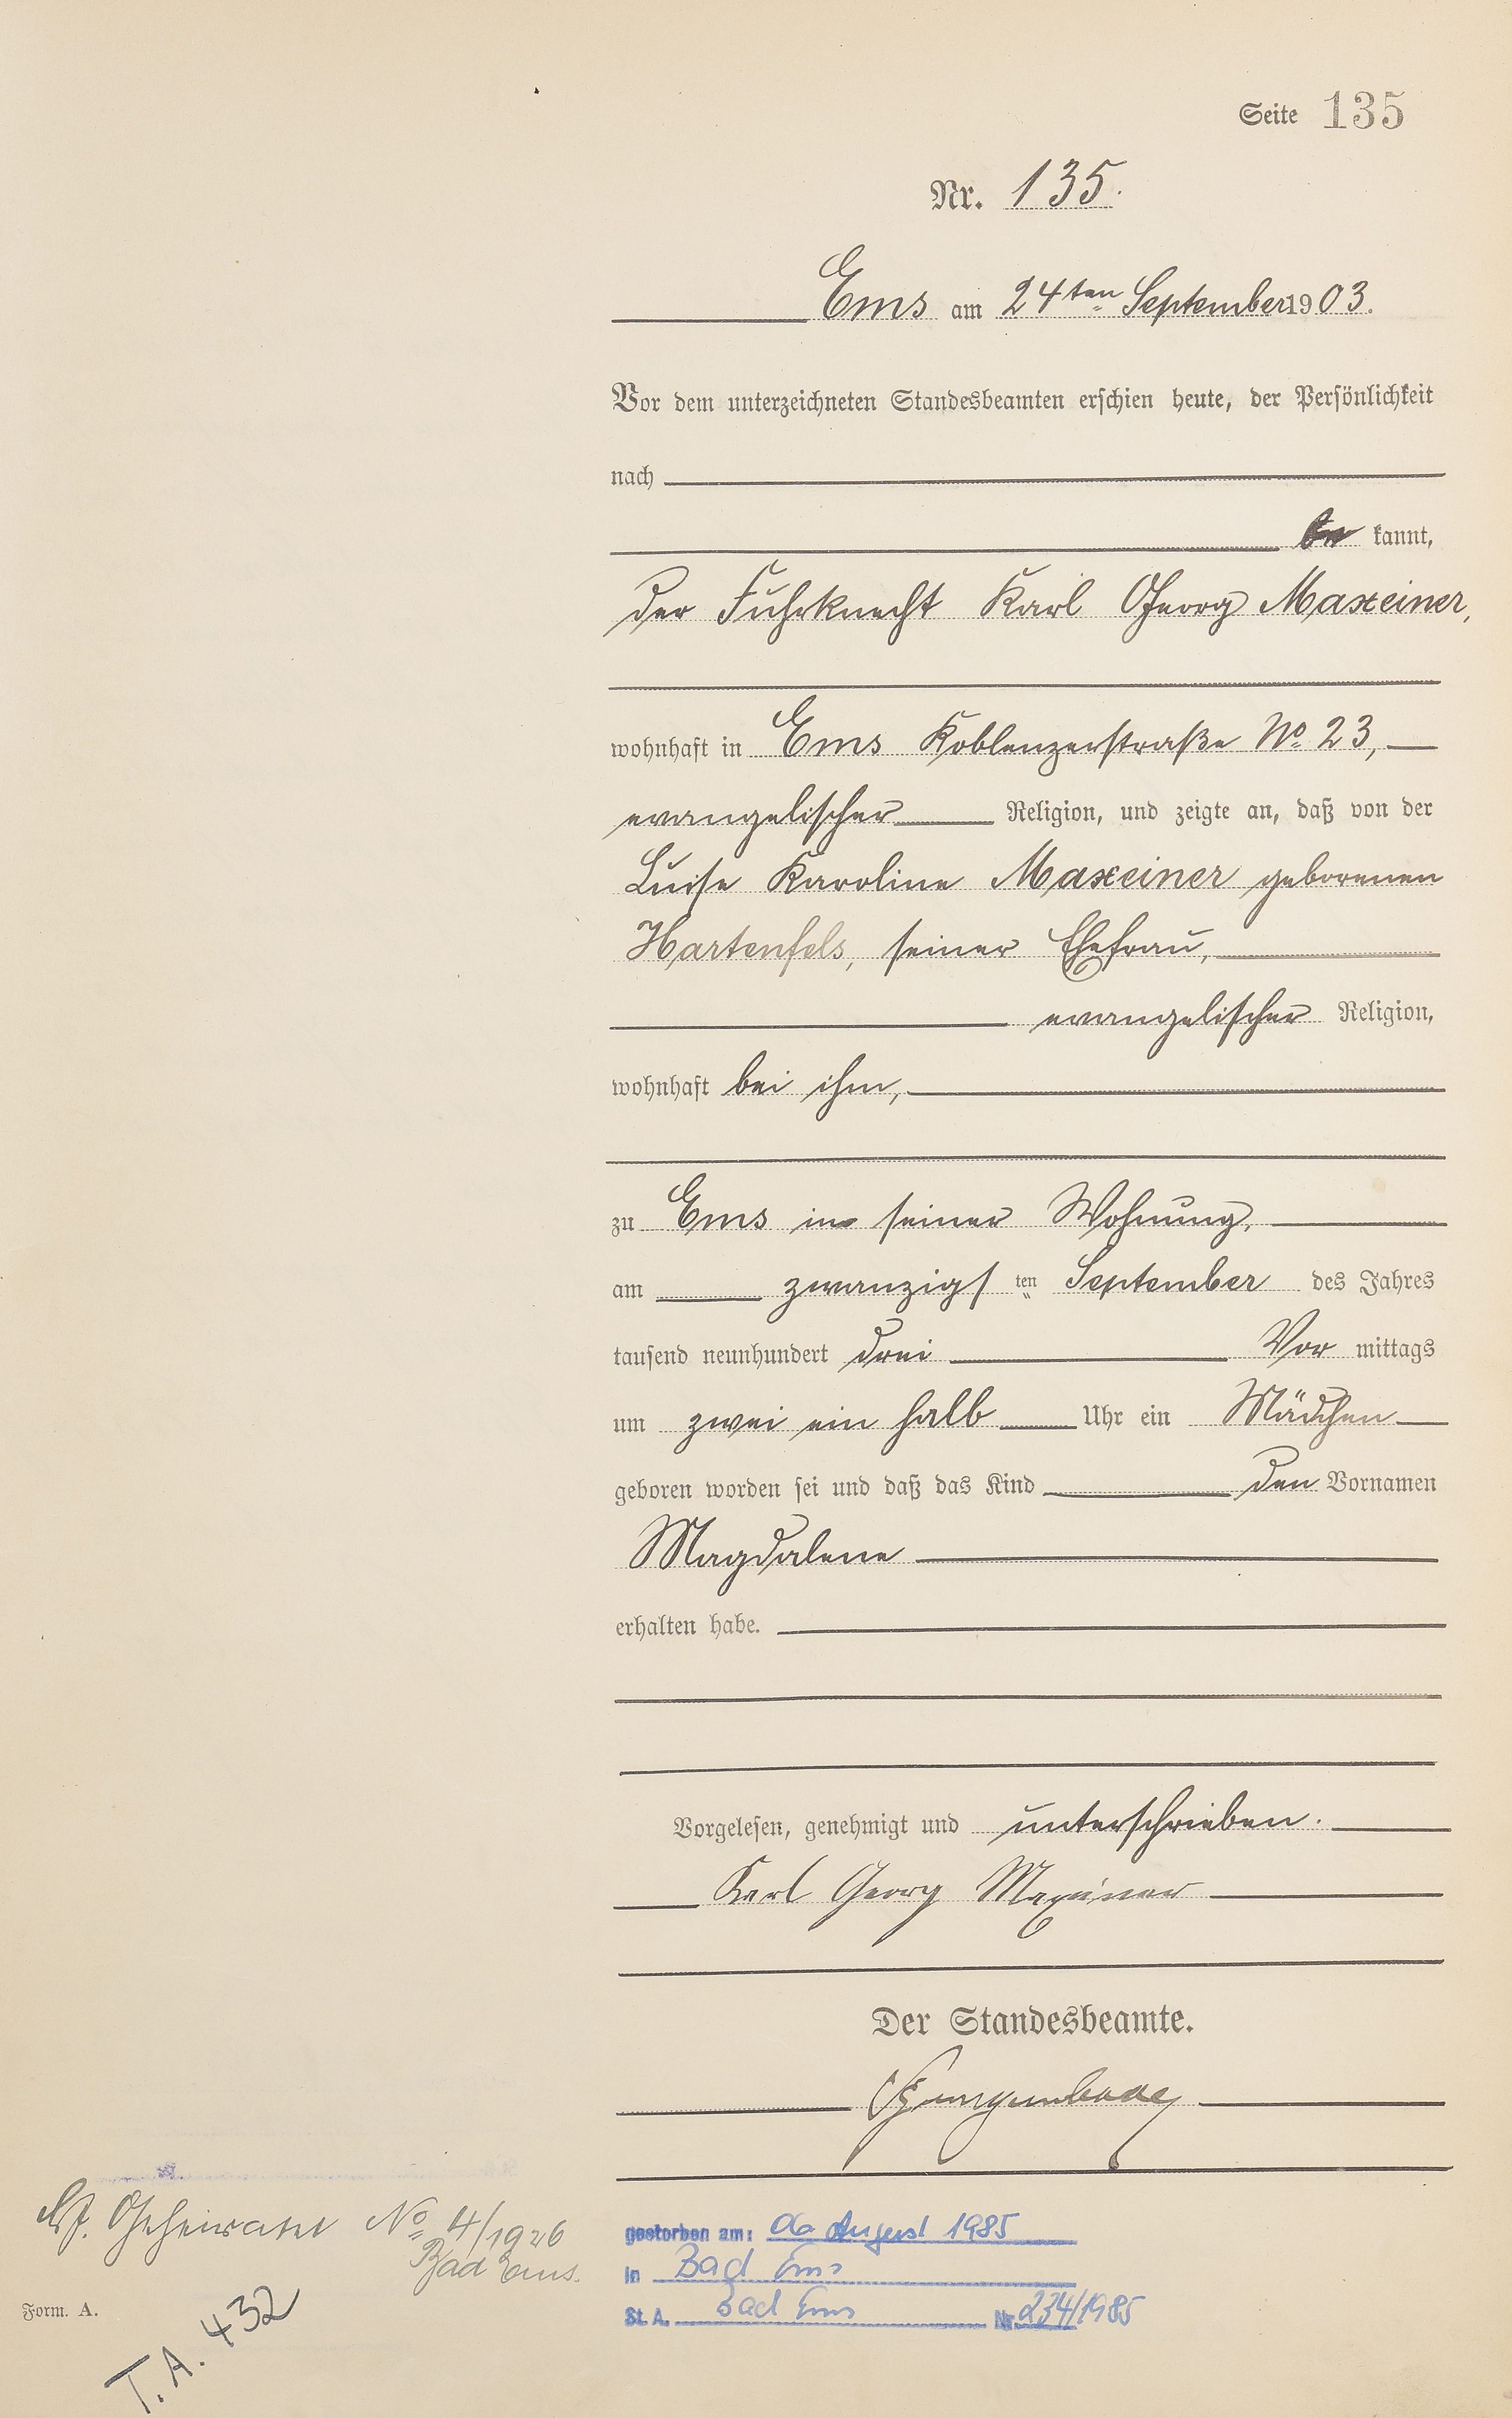 Seite 135
Nr. 135.
Ems am 24ten September 1903.
Vor dem unterzeichneten Standesbeamten erschien heute, der Persönlichkeit
nach
be kannt,
der Fuhrknecht Karl Georg Maxeiner,
wohnhaft in Ems Koblenzerstraße No. 23,
evangelischer Religion, und zeigte an, daß von der
Luise Karoline Maxeiner geborenen
Hartenfels, seiner Ehefrau,
evangelischer Religion,
wohnhaft bei ihm,
zu Ems in seiner Wohnung,
am zwanzigsten September des Jahres
tausend neunhundert drei Vor mittags
um zwei ein halb Uhr ein Mädchen
geboren worden sei und daß das Kind den Vornamen
Magdalene
erhalten habe.
Vorgelesen, genehmigt und unterschrieben.
Karl Georg Maxeiner
Der Standesbeamte.
No. 4/1926
Bad Ems.
gestorben am: 06 August 1985
in Bad Ems
St. A. Bad Ems Nr. 234/1985
Form. A.
T. A. 432